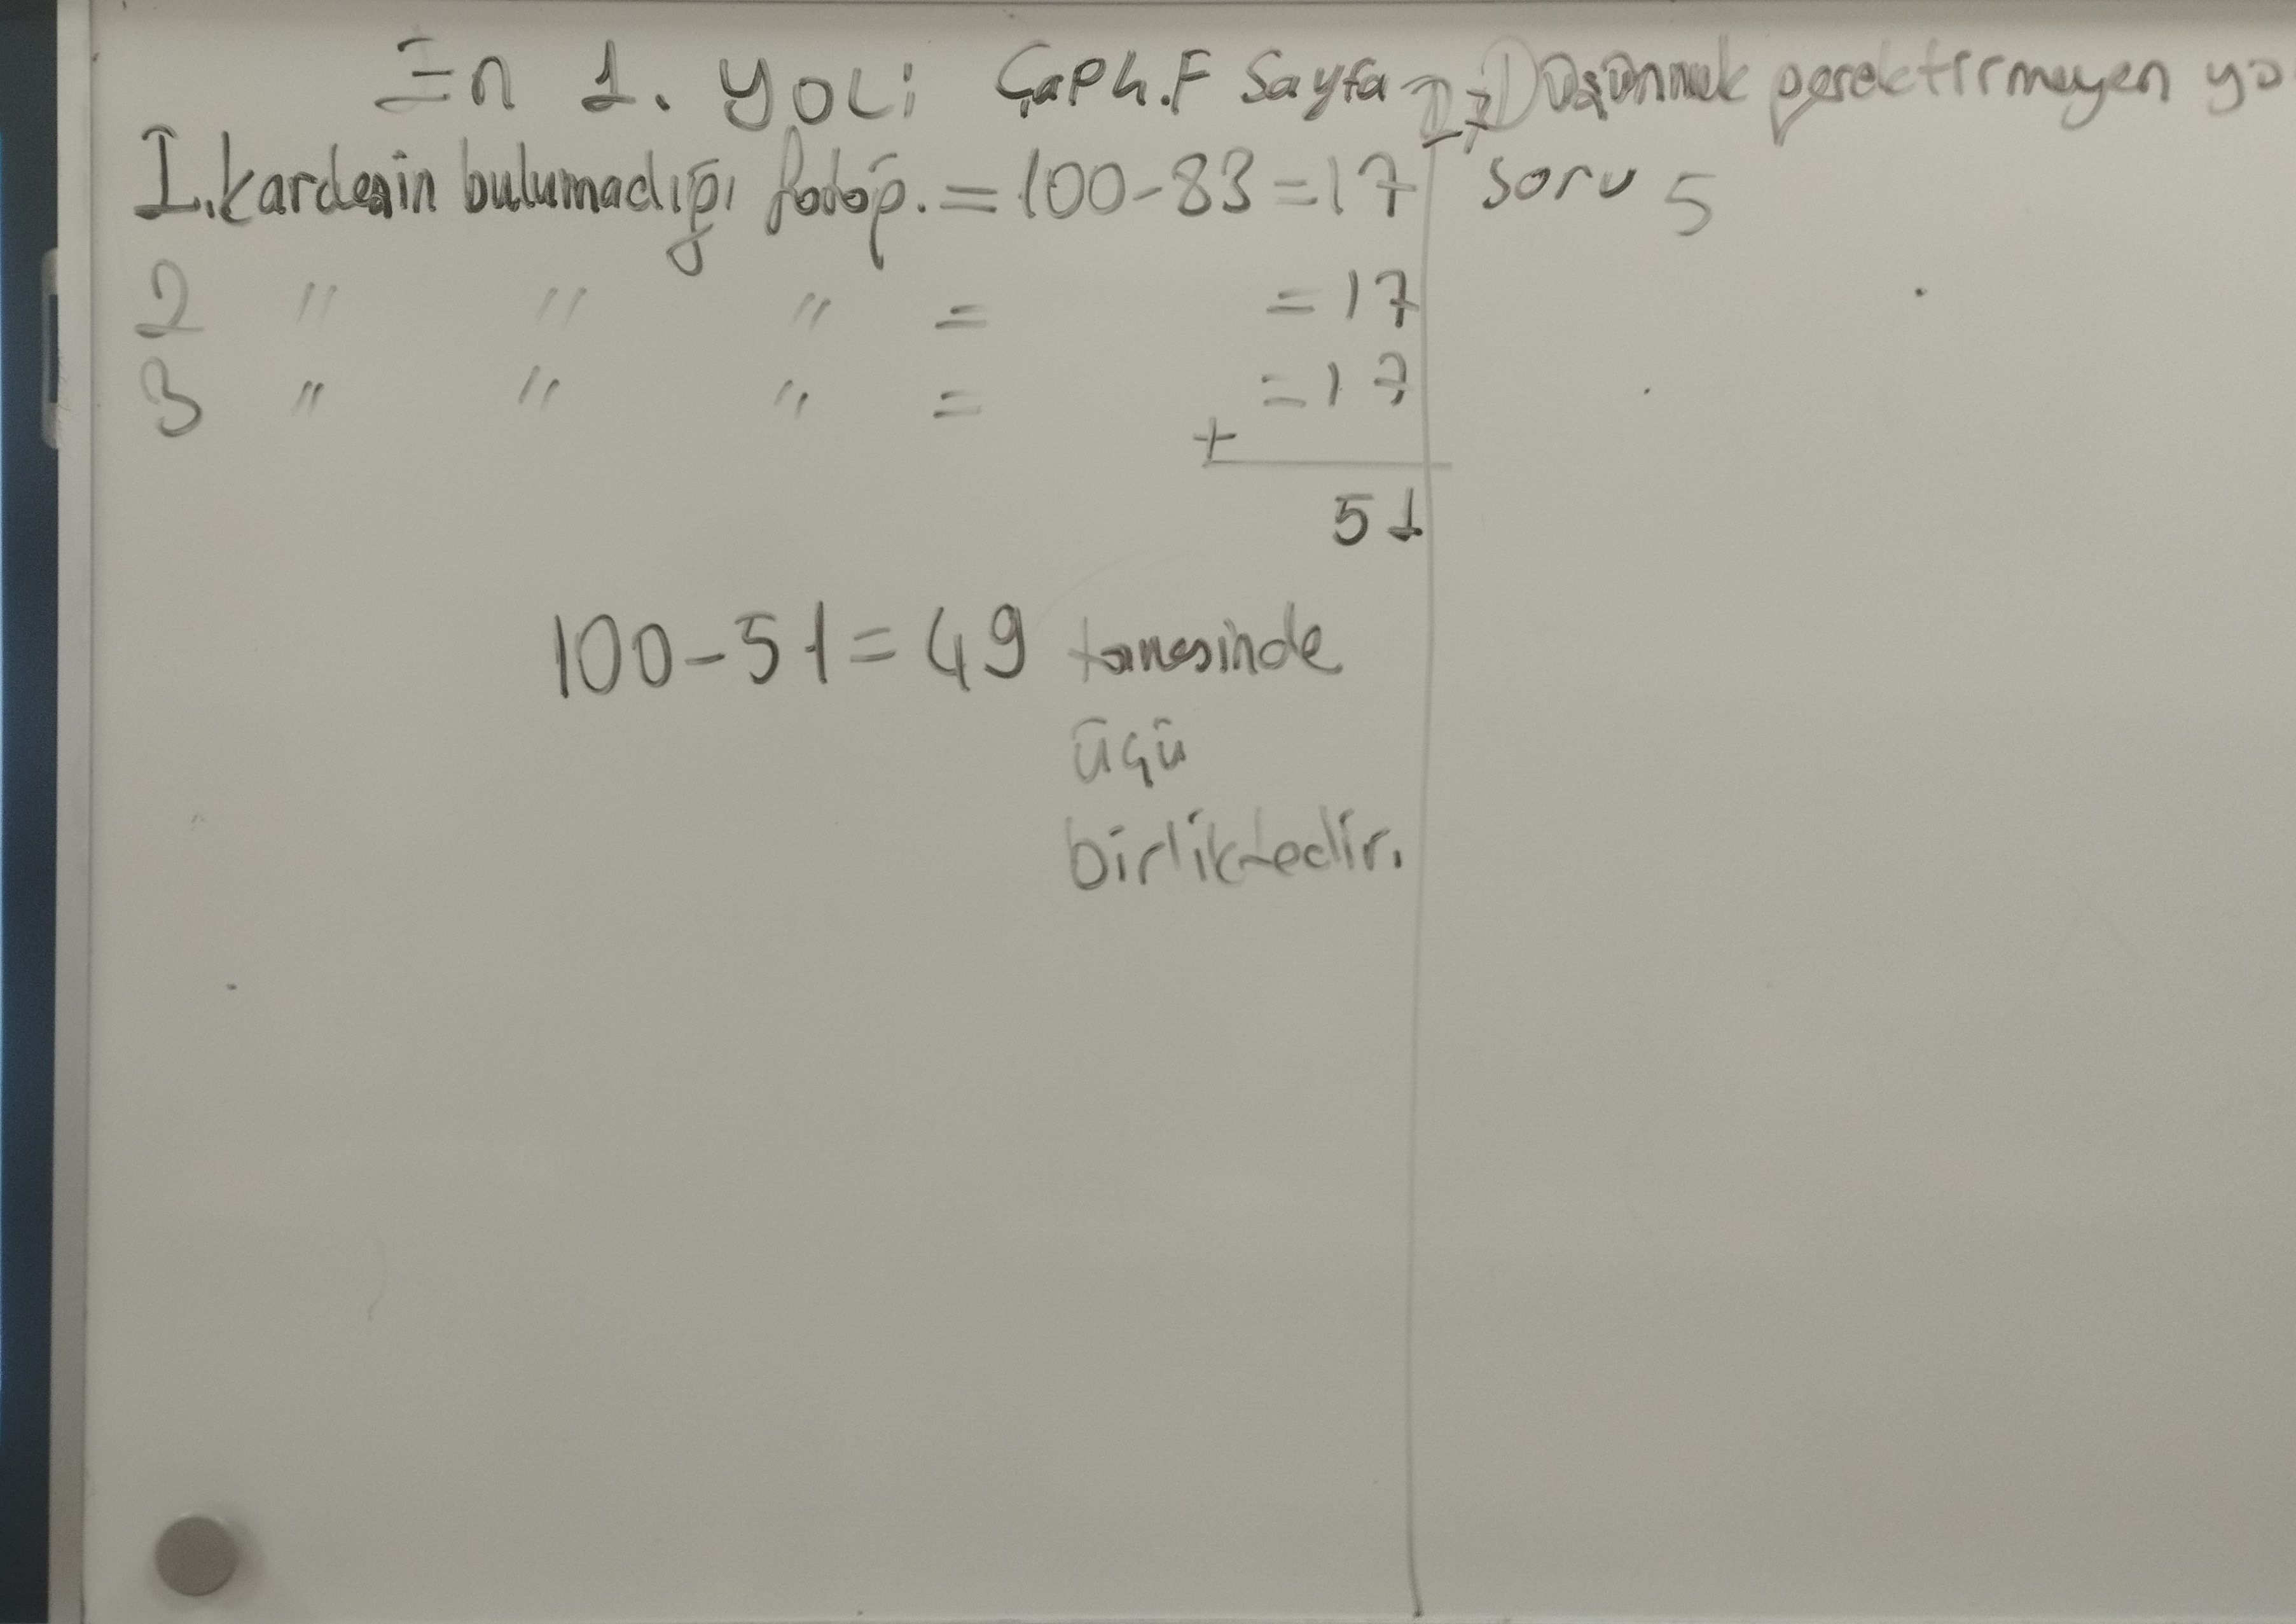 En 1. YOL: Çap h.F Sayfa 27 Düşünmek gerektirmeyen yo
I. kardeşin bulumadığı fotoğ. = 100-83 = 17 soru 5
2 " " " = = 17
3 " " " = = 17
+
51
100-51 = 49 tanesinde
üçü
birliktedir.